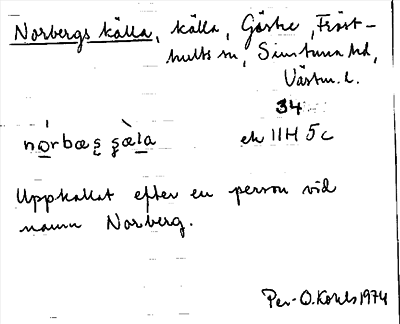 Norbergs källa, källa, Gäske, Fröst-
hults sn, Simtuna hd,
Västm. l.
34
nórbæs sæ̀la
ek 11H 5c
Uppkallat efter en person vid
namn Norberg.
Per-O. Kohls 1974